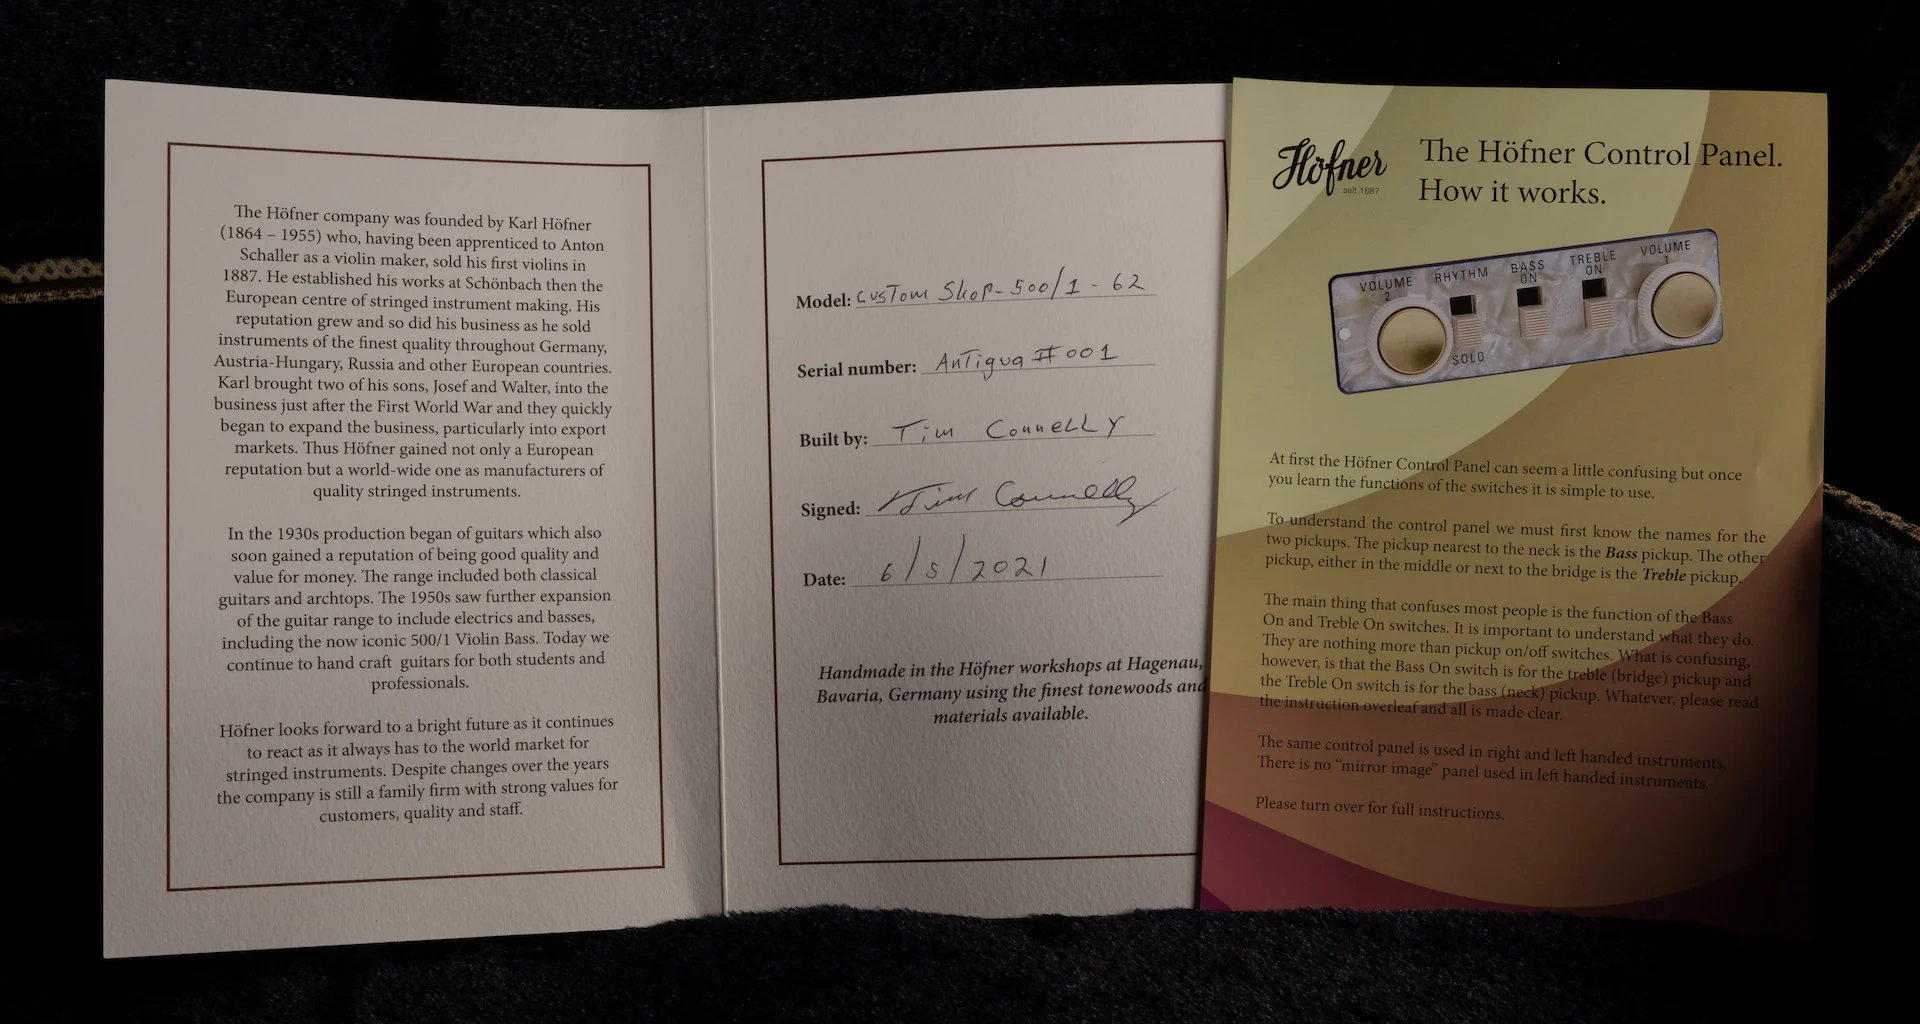 The Höfner company was founded by Karl Höfner
(1864 – 1955) who, having been apprenticed to Anton
Schaller as a violin maker, sold his first violins in
1887. He established his works at Schönbach then the
European centre of stringed instrument making. His
reputation grew and so did his business as he sold
instruments of the finest quality throughout Germany,
Austria-Hungary, Russia and other European countries.
Karl brought two of his sons, Josef and Walter, into the
business just after the First World War and they quickly
began to expand the business, particularly into export
markets. Thus Höfner gained not only a European
reputation but a world-wide one as manufacturers of
quality stringed instruments.
In the 1930s production began of guitars which also
soon gained a reputation of being good quality and
value for money. The range included both classical
guitars and archtops. The 1950s saw further expansion
of the guitar range to include electrics and basses,
including the now iconic 500/1 Violin Bass. Today we
continue to hand craft guitars for both students and
professionals.
Höfner looks forward to a bright future as it continues
to react as it always has to the world market for
stringed instruments. Despite changes over the years
the company is still a family firm with strong values for
customers, quality and staff.
Model: Custom Shop-500/1-62
Serial number: Antigua #001
Built by: Tim Connelly
Signed: Tim Connelly
Date: 6/5/2021
Handmade in the Höfner workshops at Hagenau,
Bavaria, Germany using the finest tonewoods and
materials available.
Höfner
seit 1887
The Höfner Control Panel.
How it works.
VOLUME 2
RHYTHM
SOLO
BASS ON
TREBLE ON
VOLUME 1
At first the Höfner Control Panel can seem a little confusing but once
you learn the functions of the switches it is simple to use.
To understand the control panel we must first know the names for the
two pickups. The pickup nearest to the neck is the Bass pickup. The other
pickup, either in the middle or next to the bridge is the Treble pickup.
The main thing that confuses most people is the function of the Bass
On and Treble On switches. It is important to understand what they do.
They are nothing more than pickup on/off switches. What is confusing,
however, is that the Bass On switch is for the treble (bridge) pickup and
the Treble On switch is for the bass (neck) pickup. Whatever, please read
the instruction overleaf and all is made clear.
The same control panel is used in right and left handed instruments.
There is no “mirror image” panel used in left handed instruments.
Please turn over for full instructions.